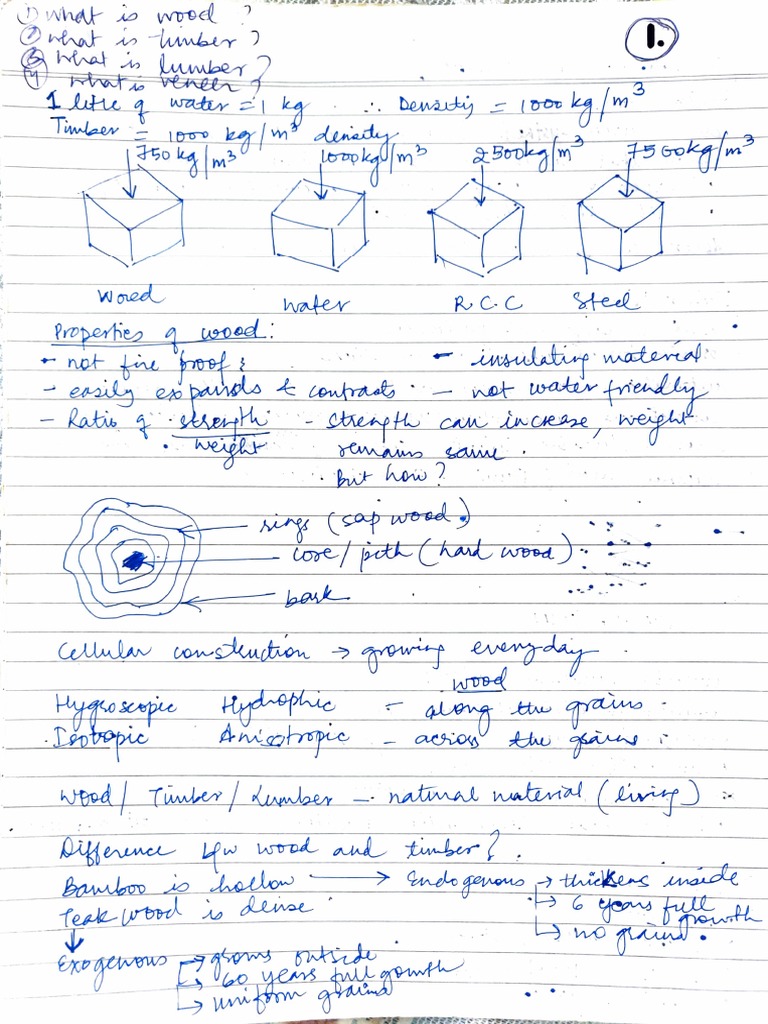 ① What is wood ?
② What is timber ?
③ What is lumber ?
④ What is veneer ?
1.
1 litre of water = 1 kg ∴ Densitis = 1000 kg/m³
Timber = 1000 kg/m³ density
750 kg/m³ 1000kg/m³ 2500kg/m³ 7500kg/m³
Wood water R.C.C Steel
Properties of wood:
- not fire proof - insulating material
- easily expands & contracts - not water friendly
- Ratio of strength/weight - strength can increase, weight
remains same.
But how?
rings (sap wood)
core/pith (hard wood)
bark
Cellular construction → growing everyday
wood
Hygroscopic Hydrophic - along the grains.
Isotopic Anisotropic - across the grains.
Wood / Timber / Lumber - natural material (living)
Difference b/w wood and timber?
Bamboo is hollow → Endogenous → thickens inside
Teak wood is dense ↳ 6 years full growth
↳ no grains.
Exogenous → grows outside
↳ 60 years full growth
↳ uniform grains